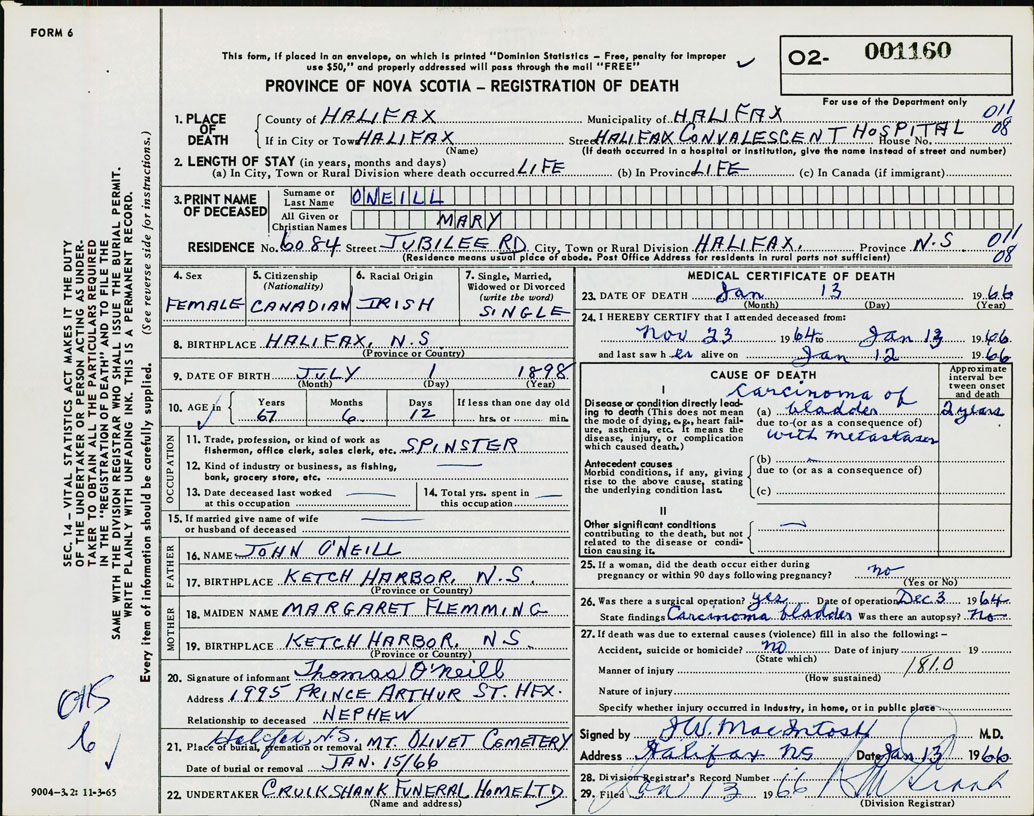 FORM 6
This form, if placed in an envelope, on which is printed "Dominion Statistics – Free, penalty for improper
use $50," and properly addressed will pass through the mail "FREE"
PROVINCE OF NOVA SCOTIA – REGISTRATION OF DEATH
02- 001160
For use of the Department only
1. PLACE OF DEATH County of HALIFAX Municipality of HALIFAX 011
If in City or Town HALIFAX Street HALIFAX CONVALESCENT HOSPITAL House No. 08
(Name) (If death occurred in a hospital or institution, give the name instead of street and number)
2. LENGTH OF STAY (in years, months and days)
(a) In City, Town or Rural Division where death occurred LIFE (b) In Province LIFE (c) In Canada (if immigrant)
3. PRINT NAME OF DECEASED Surname or Last Name ONEILL
All Given or Christian Names MARY
RESIDENCE No. 6084 Street JUBILEE RD City, Town or Rural Division HALIFAX, Province N.S 011
(Residence means usual place of abode. Post Office Address for residents in rural parts not sufficient) 08
4. Sex FEMALE
5. Citizenship (Nationality) CANADIAN
6. Racial Origin IRISH
7. Single, Married, Widowed or Divorced (write the word) SINGLE
8. BIRTHPLACE HALIFAX, N.S
(Province or Country)
9. DATE OF BIRTH JULY 1 1898
(Month) (Day) (Year)
10. AGE in Years 67 Months 6 Days 12 If less than one day old hrs. or min.
OCCUPATION
11. Trade, profession, or kind of work as
fisherman, office clerk, sales clerk, etc. SPINSTER
12. Kind of industry or business, as fishing,
bank, grocery store, etc.
13. Date deceased last worked
at this occupation
14. Total yrs. spent in
this occupation
15. If married give name of wife
or husband of deceased
FATHER
16. NAME JOHN O'NEILL
17. BIRTHPLACE KETCH HARBOR, N.S.
(Province or Country)
MOTHER
18. MAIDEN NAME MARGARET FLEMMING
19. BIRTHPLACE KETCH HARBOR, N S.
(Province or Country)
20. Signature of informant Thomas O'Neill
Address 1995 PRINCE ARTHUR ST. HFX.
Relationship to deceased NEPHEW
Halifax, N.S.
21. Place of burial, cremation or removal MT. OLIVET CEMETERY
Date of burial or removal JAN. 15/66
22. UNDERTAKER CRUIKSHANK FUNERAL HOME LTD
(Name and address)
MEDICAL CERTIFICATE OF DEATH
23. DATE OF DEATH Jan 13 1966
(Month) (Day) (Year)
24. I HEREBY CERTIFY that I attended deceased from:
Nov 23 1964 to Jan 13 1966
and last saw her alive on Jan 12 1966
CAUSE OF DEATH
Approximate interval between onset and death
I
Disease or condition directly leading to death (This does not mean
the mode of dying, e.g., heart failure, asthenia, etc. It means the
disease, injury, or complication
which caused death.)
Carcinoma of
(a) bladder 2 years
due to (or as a consequence of)
with metastases
Antecedent causes
Morbid conditions, if any, giving
rise to the above cause, stating
the underlying condition last.
(b)
due to (or as a consequence of)
(c)
II
Other significant conditions
contributing to the death, but not
related to the disease or condition causing it.
25. If a woman, did the death occur either during
pregnancy or within 90 days following pregnancy? no
(Yes or No)
26. Was there a surgical operation? yes Date of operation Dec 3 1964
State findings Carcinoma bladder Was there an autopsy? no
27. If death was due to external causes (violence) fill in also the following: –
Accident, suicide or homicide? no Date of injury 19
(State which)
Manner of injury 181.0
(How sustained)
Nature of injury
Specify whether injury occurred in industry, in home, or in public place
Signed by MacIntosh M.D.
Address Halifax NS Date Jan 13 1966
28. Division Registrar's Record Number
29. Filed Jan 13 1966
(Division Registrar)
SEC. 14 – VITAL STATISTICS ACT MAKES IT THE DUTY
OF THE UNDERTAKER OR PERSON ACTING AS UNDER-
TAKER TO OBTAIN ALL THE PARTICULARS REQUIRED
IN THE "REGISTRATION OF DEATH" AND TO FILE THE
SAME WITH THE DIVISION REGISTRAR WHO SHALL ISSUE THE BURIAL PERMIT.
WRITE PLAINLY WITH UNFADING INK. THIS IS A PERMANENT RECORD.
Every item of information should be carefully supplied. (See reverse side for instructions.)
6
9004-3.2: 11-3-65